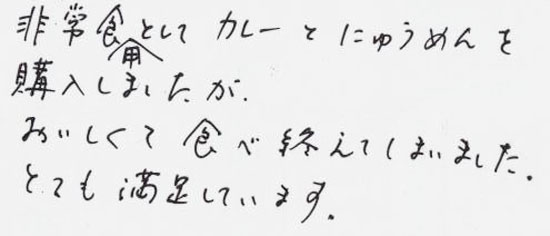 非常食用としてカレーとにゅうめんを
購入しましたが、
おいしくて食べ終えてしまいました。
とても満足しています。